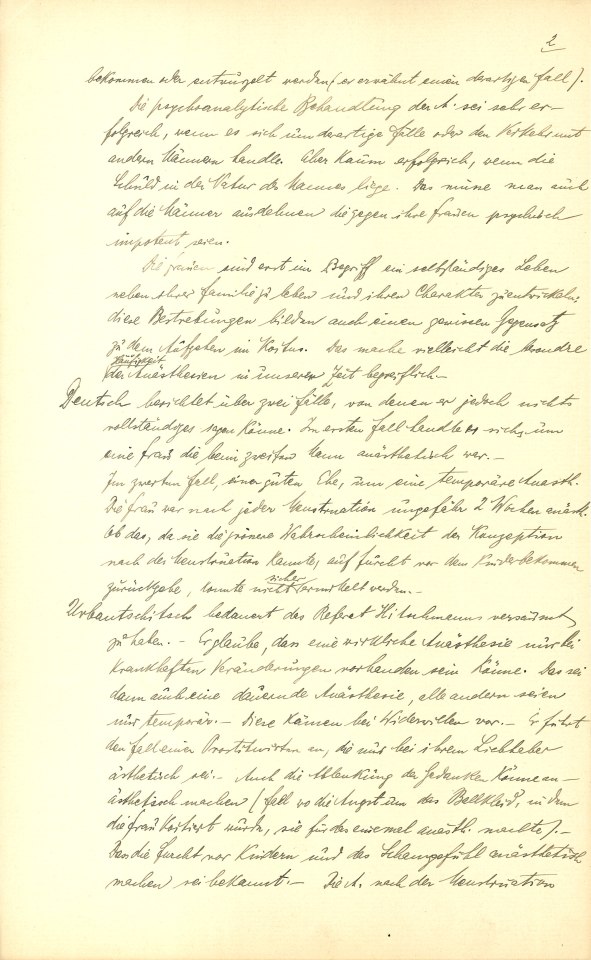 2
bekommen oder entwurzelt werden (er erwähnt einen derartigen Fall).
Die psychoanalytische Behandlung der A. sei sehr er-
folgreich, wenn es sich um derartige Fälle oder den Verkehr mit
andern Männern handle. Aber kaum erfolgreich, wenn die
Schuld in der Natur des Mannes liege. Das müsse man auch
auf die Männer ausdehnen die gegen ihre Frauen psychisch
impotent seien.
Die Frauen sind erst im Begriff ein selbständiges Leben
neben ihrer Familie zu leben und ihren Charakter zu entwickeln;
diese Bestrebungen bilden auch einen gewissen Gegensatz
zu dem Aufgehen im Koitus. Das mache vielleicht die besondre
Häufigkeit
der Anästhesien in unserer Zeit begreiflich.-
Deutsch berichtet über zwei Fälle, von denen er jedoch nichts
vollständiges sagen könne. Im ersten Fall handle es sich um
eine Frau die beim zweiten Mann anästhetisch war.-
Im zweiten Fall, einer guten Ehe, um eine temporäre Anästh.
Die Frau war nach jeder Menstruation ungefähr 2 Wochen anästh.
Ob das, da sie die grössere Wahrscheinlichkeit der Konzeption
nach der Menstruation kannte, auf Furcht vor dem Kinderbekommen
sicher
zurückgehe, konnte nicht ermittelt werden.-
Urbantschitsch bedauert das Referat Hitschmanns versäumt
zu haben.- Er glaube, dass eine wirkliche Anästhesie nur bei
krankhaften Veränderungen vorhanden sein könne. Das sei
dann auch eine dauernde Anästhesie, alle andern seien
nur temporär.- Diese kämen bei Widerwillen vor.- Er führt
den Fall einer Prostituirten an, die nur bei ihrem Liebhaber
ästhetisch sei.- Auch die Ablenkung der Gedanken könne an-
ästhetisch machen (Fall wo die Angst um das Ballkleid, in dem
die Frau koitiert wurde, sie für das eine mal anästh. machte).-
Dass die Furcht vor Kindern und das Schamgefühl anästhetisch
machen sei bekannt.- Die A. nach der Menstruation